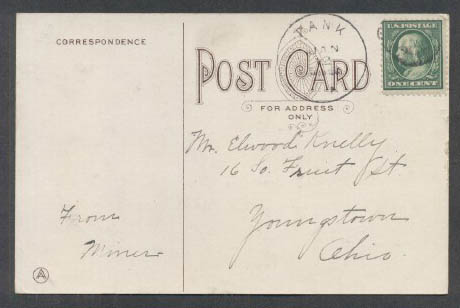 CORRESPONDENCE
POST CARD
FOR ADDRESS
ONLY
TANK
U.S. POSTAGE
ONE CENT
Mr. Elwood Knelly
16 So. Fruit St
Youngstown
Ohio.
From
Miner
A